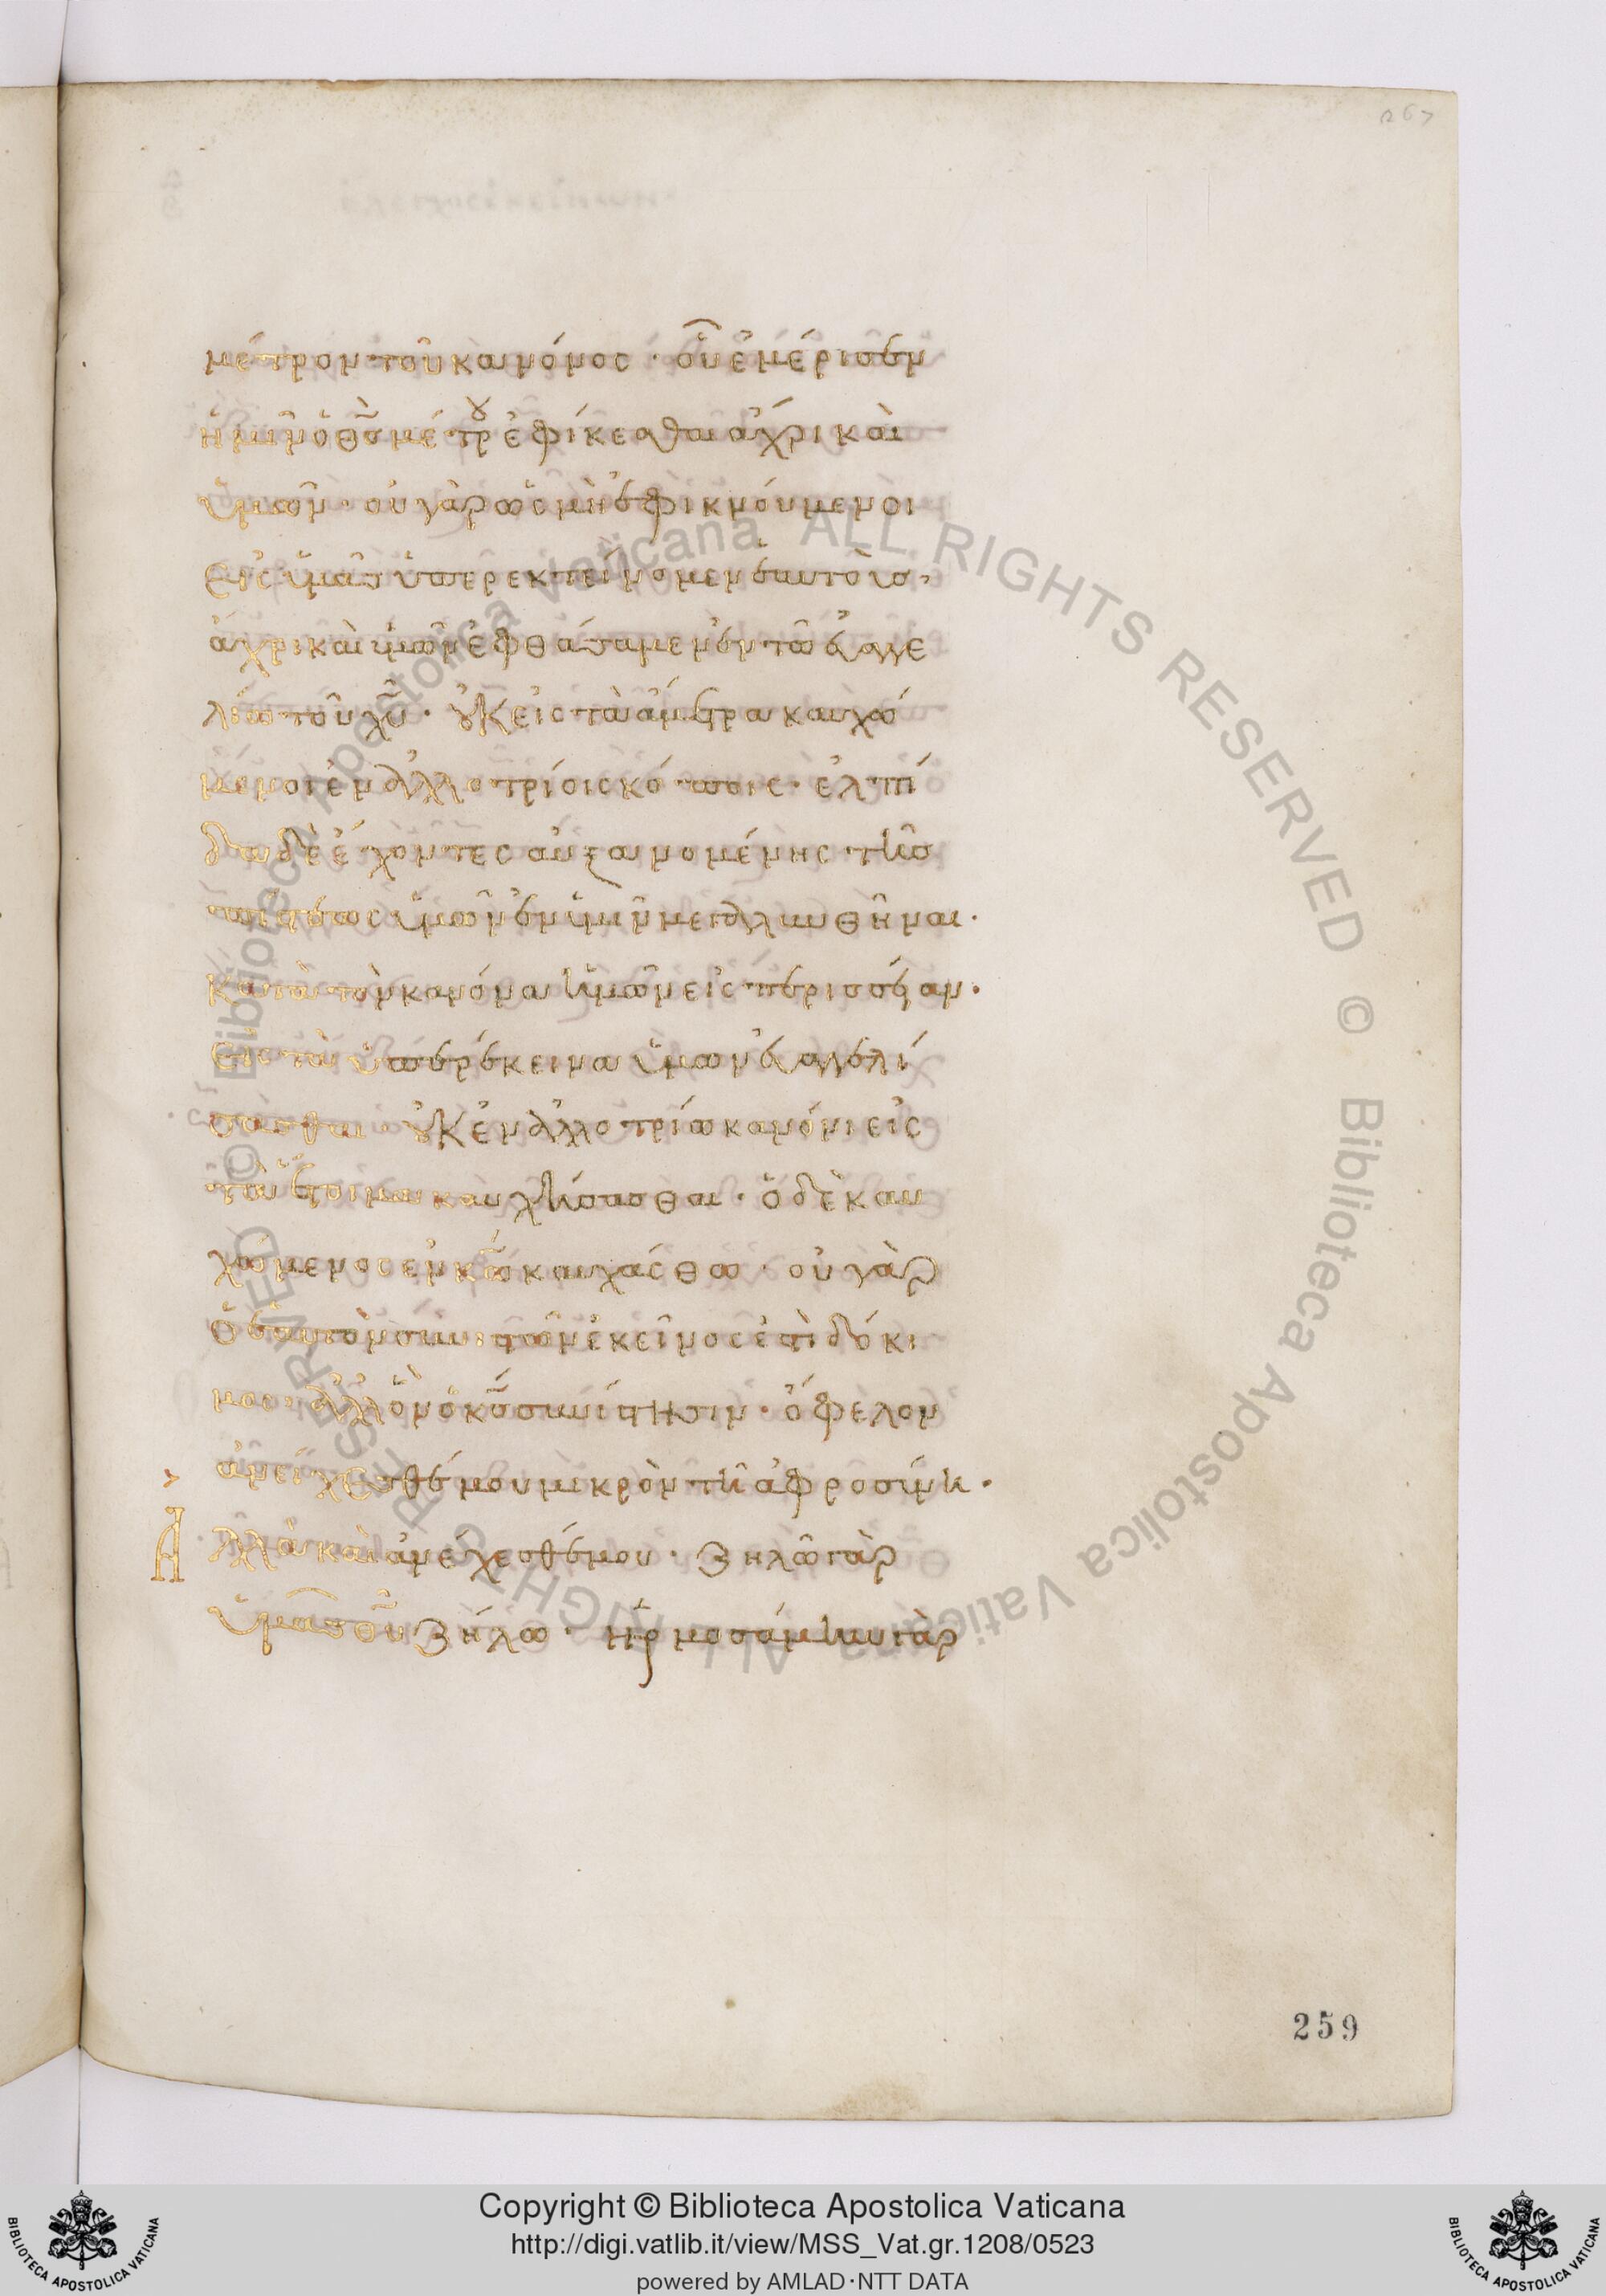 267
μέτρον τοῦ κανόνος · οὗ ἐμέρισεν
ἡμῖν ὁ θ̅ς̅ μέτρου ἐφίκεσθαι ἄχρι καὶ
ὑμῶν · οὐ γὰρ ὡς μὴ ἐφικνούμενοι
εἰς ὑμᾶς ὑπερεκτείνομεν ἑαυτούς,
ἄχρι καὶ ὑμῶν ἐφθάσαμεν ἐν τῶ εὐαγγε
λίω τοῦ χ̅υ̅ · οὐκ εἰς τὰ ἄμετρα καυχώ
μενοι ἐν ἀλλοτρίοις κόποις · ἐλπί
δα δὲ ἔχοντες αὐξανομένης τῆς
πίστεως ὑμῶν ἐν ὑμῖν μεγαλυνθῆναι ·
κατὰ τὸν κανόνα ἡμῶν εἰς περισσείαν ·
εἰς τὰ ὑπερέκεινα ὑμων εὐαγγελί
σασθαι · οὐκ ἐν ἀλλοτρίω κανόνι εἰς
τὰ ἕτοιμα καυχήσασθαι · ὁ δὲ καυ
χώμενος ἐν κ̅ω̅ καυχάσθω · οὐ γὰρ
ὁ ἑαυτὸν συνιστῶν ἐκεῖνος ἐστὶ δόκι
μος · ἀλλ ὃν ὁ κ̅ς̅ συνίστησιν · ὄφελον
ἀνείχεσθέ μου μικρὸν τῆ ἀφροσύνη ·
Αλλὰ καὶ ἀνέχεσθέ μου · ζηλῶ γὰρ
ὑμᾶς θ̅υ̅ ζήλω · ἡρμοσάμην γὰρ
259
© Biblioteca Apostolica Vaticana ALL RIGHTS RESERVED © Biblioteca Apostolica Vaticana ALL RIGHTS RESERVED
Copyright © Biblioteca Apostolica Vaticana
http://digi.vatlib.it/view/MSS_Vat.gr.1208/0523
powered by AMLAD·NTT DATA
BIBLIOTECA APOSTOLICA VATICANA
BIBLIOTECA APOSTOLICA VATICANA